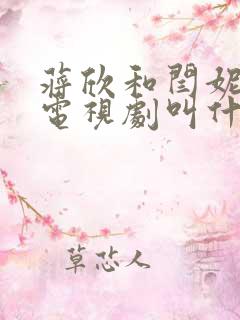 蔣欣和閆妮
電視劇叫什
草芯人